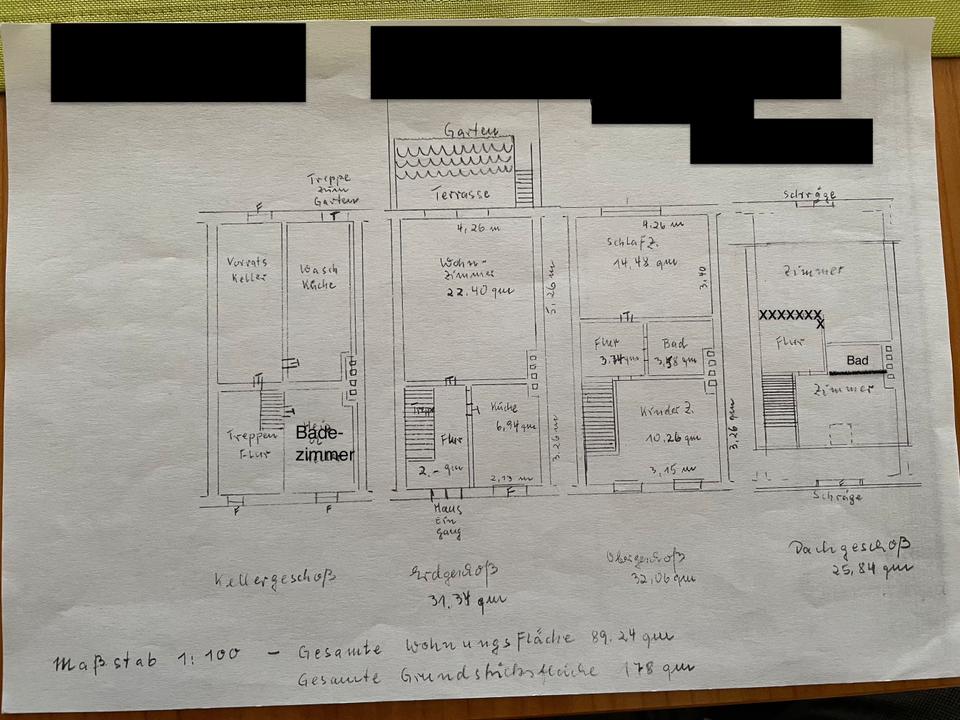 Kellergeschoß
F
Treppe
zum
Garten
T
Vorrats
Keller
Wasch
Küche
T
Treppen
Flur
Bade-
zimmer
F
F
Erdgeschoß
31,34 qm
Garten
Terrasse
4,26 m
Wohn-
zimmer
22.40 qm
5,26 m
T
Treppe
Flur
2,- qm
Küche
6,94 qm
3,26 m
2,13 m
F
Haus
ein
gang
Obergeschoß
32,06 qm
4,26 m
Schlafz.
14,48 qm
3,40
T
Flur
Bad
Kinder Z.
10,26 qm
3,15 m
3,26 qm
Dachgeschoß
25,84 qm
Schräge
Zimmer
XXXXXXX
X
Flur
Bad
Zimmer
Schräge
Maßstab 1:100 – Gesamte Wohnungsfläche 89.24 qm
Gesamte Grundstücksfläche 178 qm